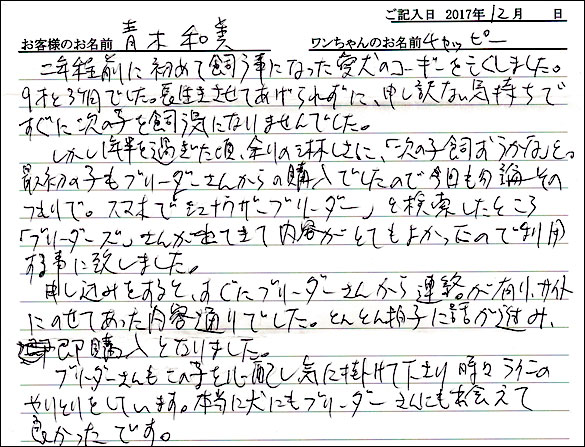 ご記入日 2017年12月 日
お客様のお名前 青木和美 ワンちゃんのお名前 チャッピー
二年程前に初めて飼う事になった愛犬のコーギーを亡くしました。
9才と3ヶ月でした。長生きさせてあげられずに、申し訳ない気持ちで
すぐに次の子を飼う気になりませんでした。
しかし1年半を過ぎた頃、余りの淋しさに、「次の子飼おうかな」と。
最初の子もブリーダーさんからの購入でしたので今回も勿論その
つもりで。スマホで「ミニチュアダックスブリーダー」を検索したところ
「ブリーダーズ」さんが出てきて内容がとてもよかったので利用
する事に致しました。
申し込みをすると、すぐにブリーダーさんから連絡が有り、サイト
にのせてあった内容通りでした。とんとん拍子に話が進み、
即購入となりました。
ブリーダーさんもこの子を心配し気に掛けて下さり時々ラインの
やりとりをしています。本当に犬にもブリーダーさんにも出会えて
良かったです。